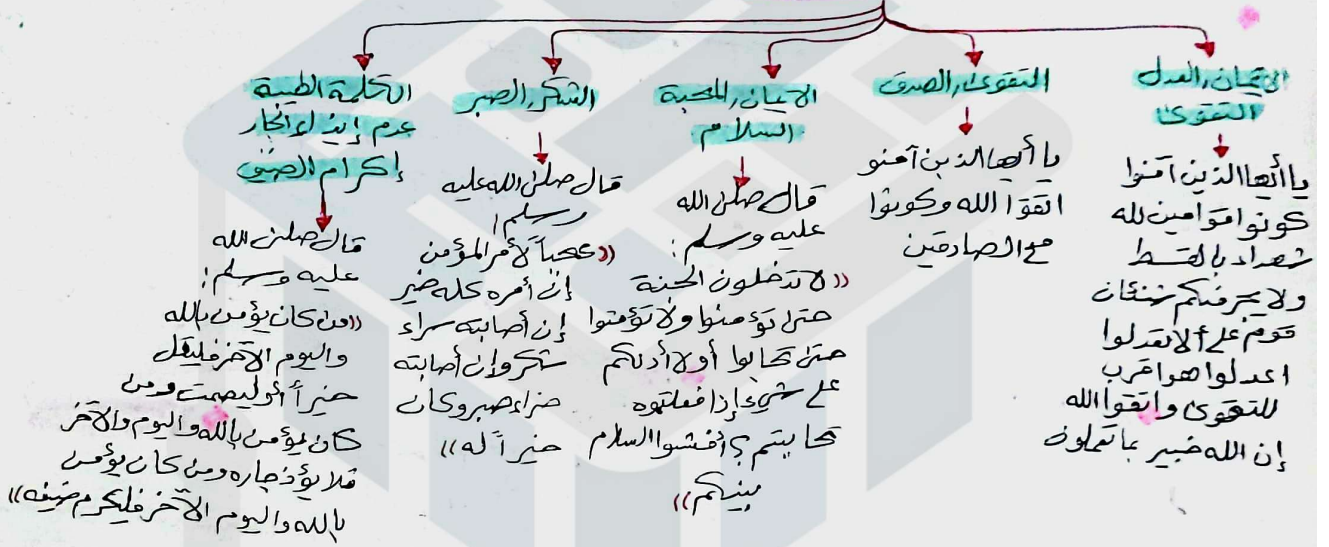 الإيمان، العدل
التقوى
يا أيها الذين آمنوا
كونوا قوامين لله
شهداء بالقسط
ولا يجرمنكم شنئان
قوم على ألا تعدلوا
اعدلوا هو اقرب
للتقوى واتقوا الله
إن الله خبير بما تعملون
التقوى، الصدق
يا أيها الذين آمنو
اتقوا الله وكونوا
مع الصادقين
الايمان، المحبة
السلام
قال صلى الله
عليه وسلم:
((لا تدخلون الجنة
حتى تؤمنوا ولا تؤمنوا
حتى تحابوا أولا أدلكم
على شيء إذا فعلتموه
تحابتم؟ أفشوا السلام
بينكم))
الشكر، الصبر
قال صلى الله عليه
وسلم:
((عجباً لأمر المؤمن
إن أمره كله خير
إن أصابته سراء
شكر وإن أصابته
ضراء صبر وكان
خيراً له))
الكلمة الطيبة
عدم إيذاء الجار
إكرام الضيف
قال صلى الله
عليه وسلم:
((من كان يؤمن بالله
واليوم الآخر فليقل
خيراً أو ليصمت ومن
كان يؤمن بالله واليوم والآخر
فلا يؤذ جاره ومن كان يؤمن
بالله واليوم الآخر فليكرم ضيفه))